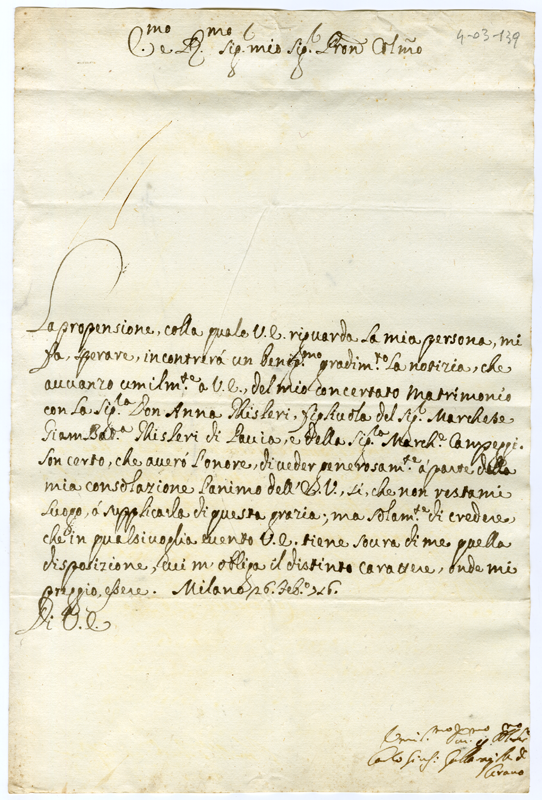 Em.mo e R.mo Sig.r mio Sig.r Pron Colmo
4-03-139
La propensione, colla quale V.E. riguarda la mia persona, mi
fà sperare, incontrerà un benig.mo gradim.to la notizia, che
avvanzo umilm.te à V.E., del mio concertato Matrimonio
con la Sig.la Don Anna Ghisleri, figliuola del Sig.r Marchese
Giam Batt.a Ghisleri di Pavia, e della Sig.la March.e Campeggi.
Son certo, che averò l'onore, di veder generosam.te à parte della
mia consolazione l'animo dell'E.V., sì, che non restami
luogo, à supplicarla di questa grazia; ma solam.te di credere,
che in qualsivoglia evento V.E. tiene sovra di me quella
disposizione, cui m'obliga il distinto carattere, onde mi
preggio, essere. Milano 26. Feb.o 26.
Di V.E.
Carlo